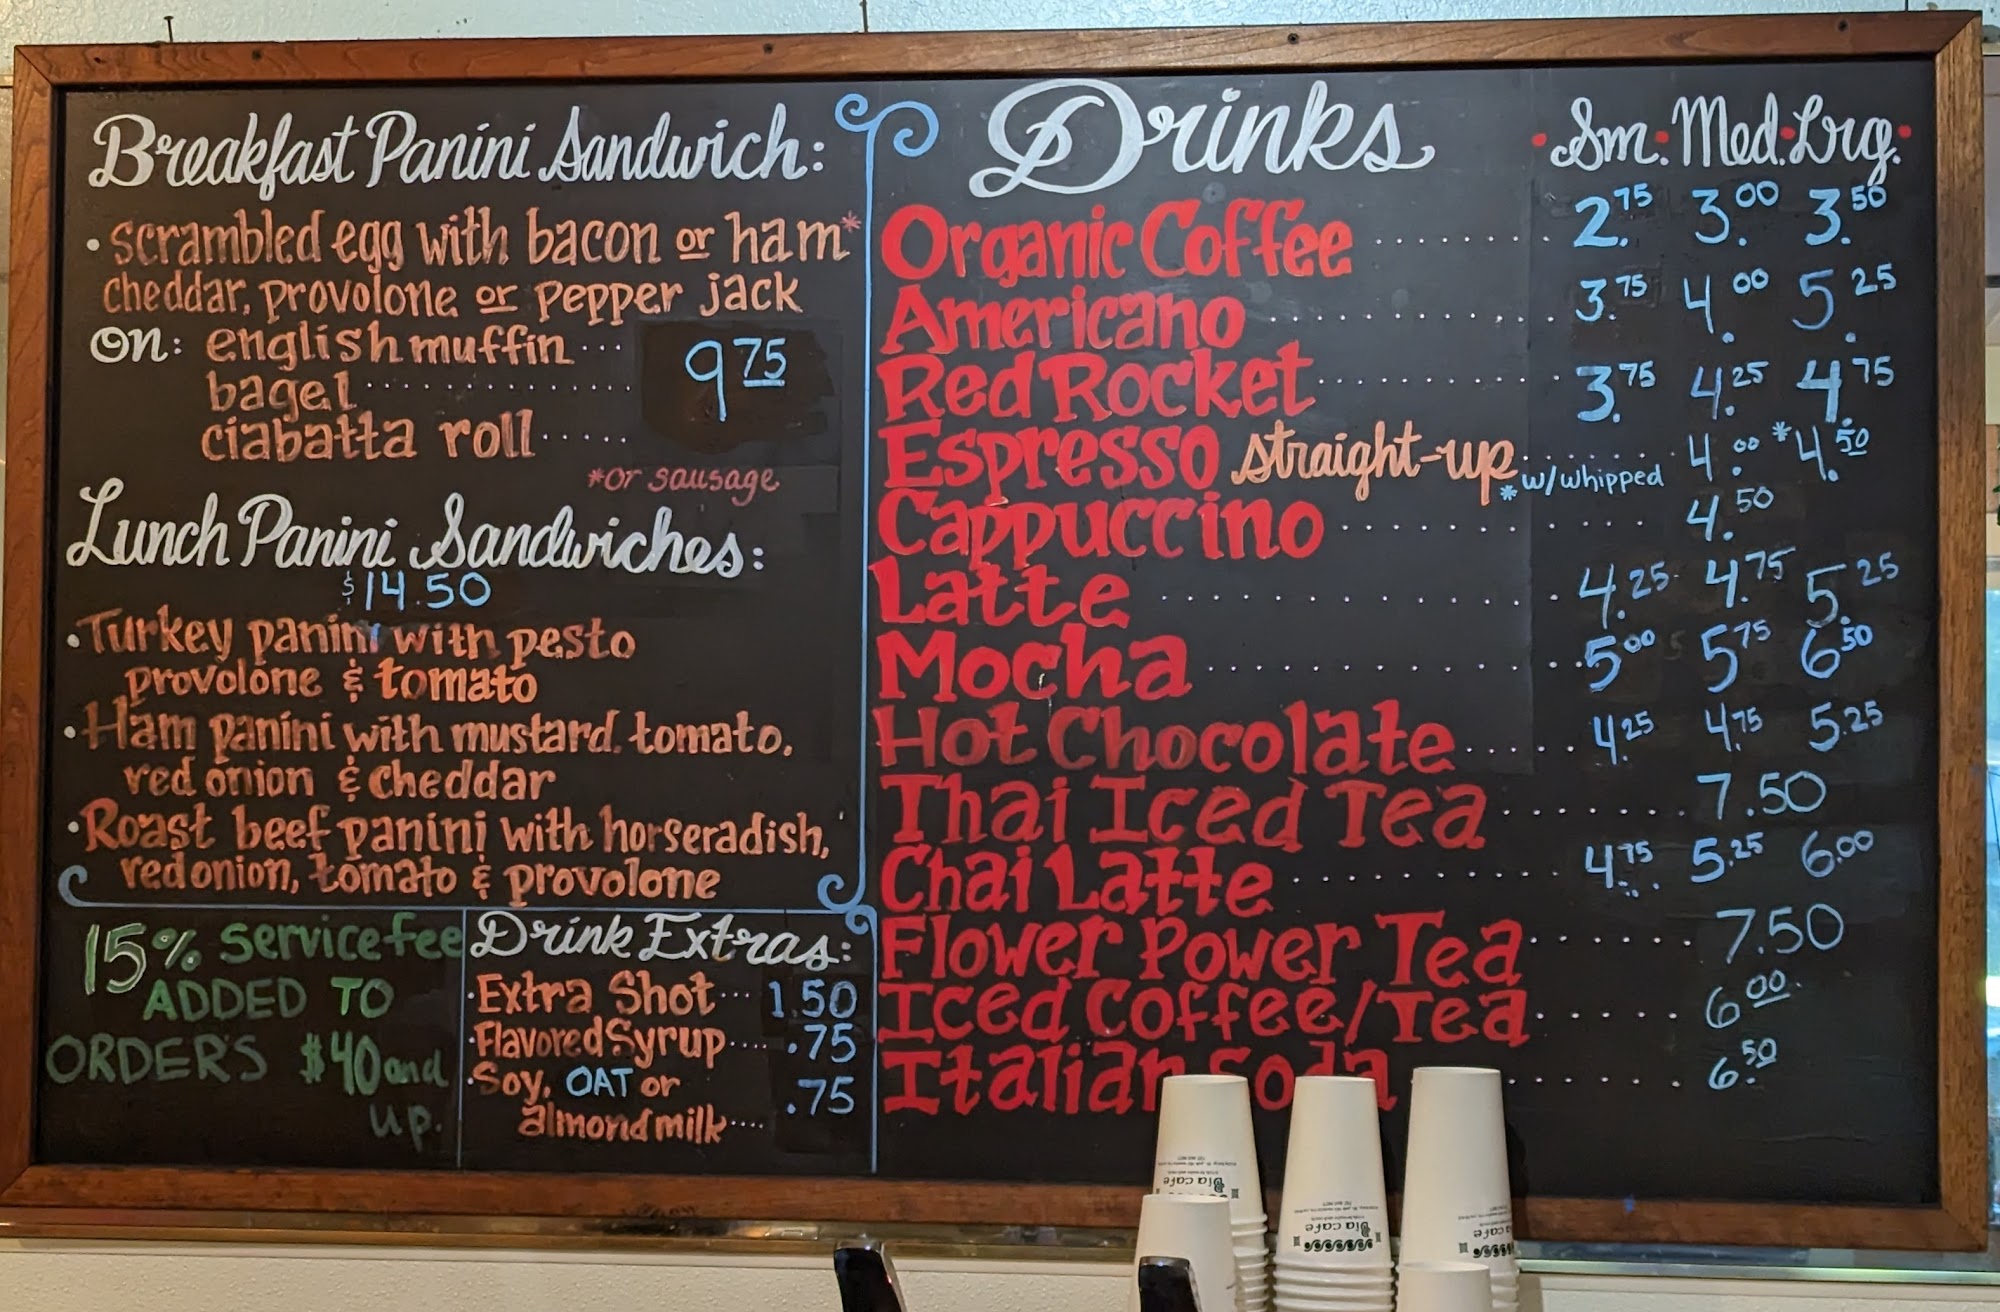 Breakfast Panini Sandwich:
• scrambled egg with bacon or ham*
cheddar, provolone or pepper jack
on: english muffin ... 9 75
bagel ..............
ciabatta roll .....
*or sausage
Lunch Panini Sandwiches:
$14.50
• Turkey panini with pesto
provolone & tomato
• Ham panini with mustard, tomato,
red onion & cheddar
• Roast beef panini with horseradish,
red onion, tomato & provolone
15% Service fee
ADDED TO
ORDER'S $40 and
up.
Drink Extras:
• Extra Shot ... 1.50
• Flavored Syrup .... .75
• Soy, OAT or
almond milk .... .75
Drinks • Sm. • Med. • Lrg. •
Organic Coffee ....... 2.75 3.00 3.50
Americano .............. 3.75 4.00 5.25
Red Rocket ........... 3.75 4.25 4.75
Espresso straight-up ....... 4.00 *4.50
*w/whipped
Cappuccino ............. 4.50
Latte ................. 4.25 4.75 5.25
Mocha ................ 5.00 5.75 6.50
Hot Chocolate ...... 4.25 4.75 5.25
Thai Iced Tea ......... 7.50
Chai Latte ............ 4.75 5.25 6.00
Flower Power Tea ....... 7.50
Iced Coffee/Tea ...... 6.00
Italian Soda ....... 6.50
Dia cafe